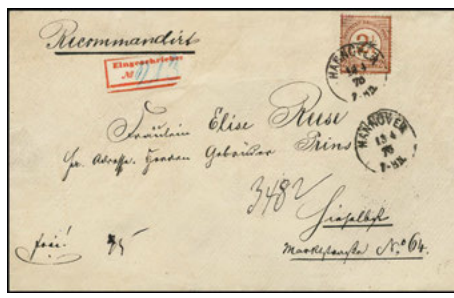 Recommandirt
2½
Eingeschrieben
№
HANNOVER
13 4
76
7-8N.
HANNOVER
13 4
76
7-8N.
Fräulein Elise Ruse
pr. Adresse. Herren Gebrüder Prins
3482
Hieselbst
Marktstraße No. 64.
frei!